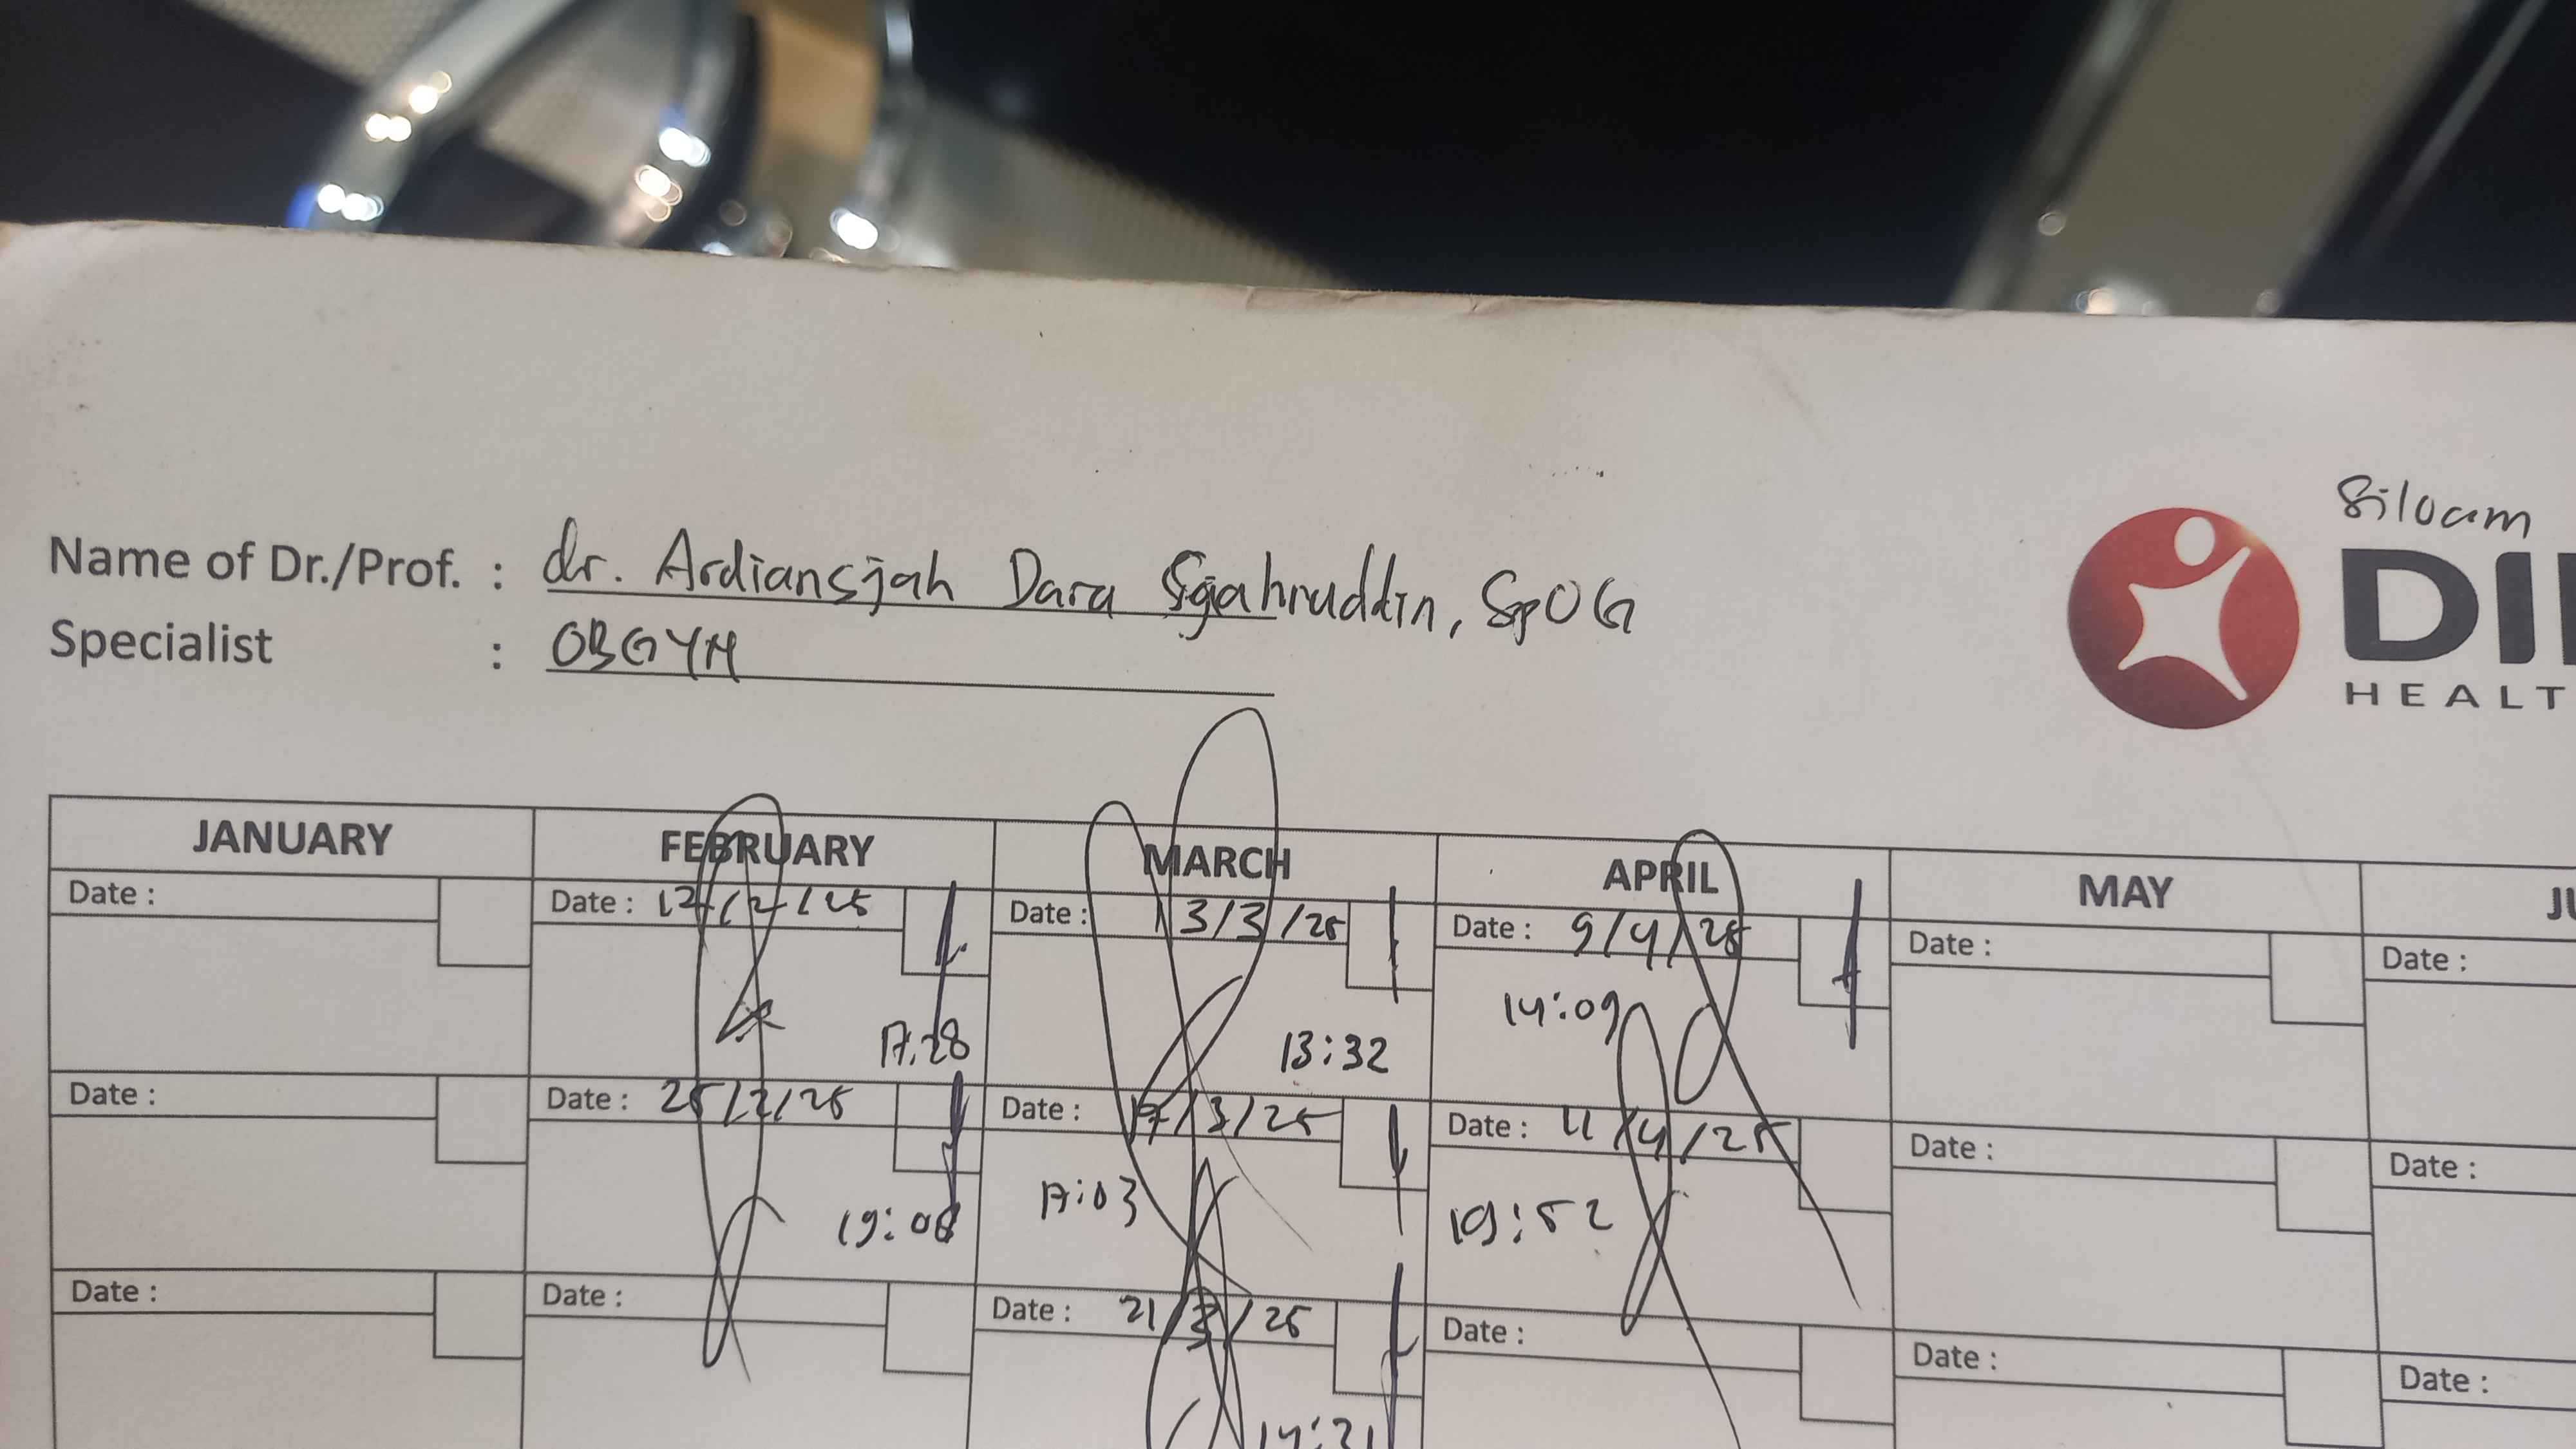 Siloam
Name of Dr./Prof. : dr. Ardiansjah Dara Sjahruddin, SpOG
DI
HEALT
Specialist : OBGYN
JANUARY FEBRUARY MARCH APRIL MAY JU
Date : Date : 12/2/25 Date : 13/3/25 Date : 9/4/25 Date : Date :
17.28 13:32 14:09
Date : Date : 25/2/25 Date : 17/3/25 Date : 11/4/25 Date : Date :
19:08 17:03 19:52
Date : Date : Date : 21/3/25 Date : Date : Date :